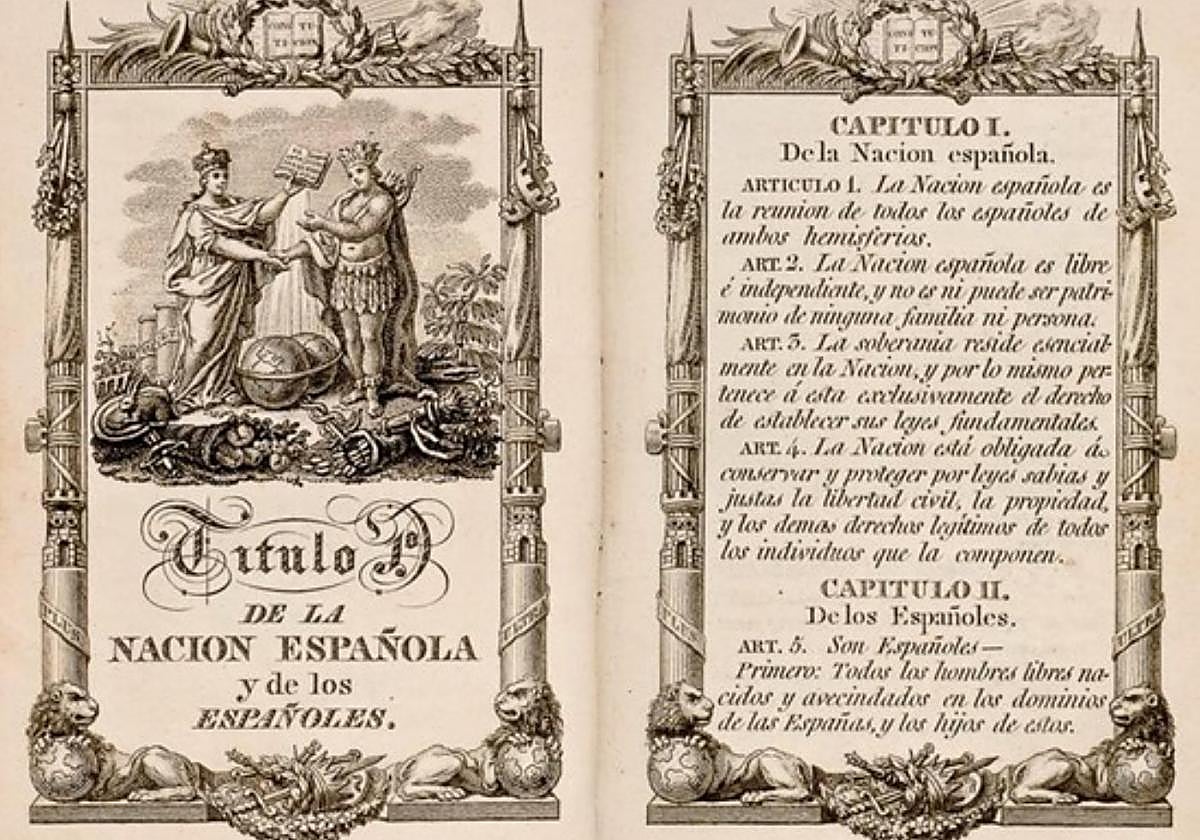 CONS TI
TU CION
Titulo Pº
DE LA
NACION ESPAÑOLA
y de los
ESPAÑOLES.
PLUS
ULTRA
CAPITULO I.
De la Nacion española.
ARTICULO 1. La Nacion española es
la reunion de todos los españoles de
ambos hemisferios.
ART. 2. La Nacion española es libre
é independiente, y no es ni puede ser patri-
monio de ninguna familia ni persona.
ART. 3. La soberania reside esencial-
mente en la Nacion, y por lo mismo per-
tenece á esta exclusivamente el derecho
de establecer sus leyes fundamentales.
ART. 4. La Nacion está obligada á
conservar y proteger por leyes sabias y
justas la libertad civil, la propiedad,
y los demas derechos legítimos de todos
los individuos que la componen.
CAPITULO II.
De los Españoles.
ART. 5. Son Españoles—
Primero: Todos los hombres libres na-
cidos y avecindados en los dominios
de las Españas, y los hijos de estos.
PLUS
ULTRA